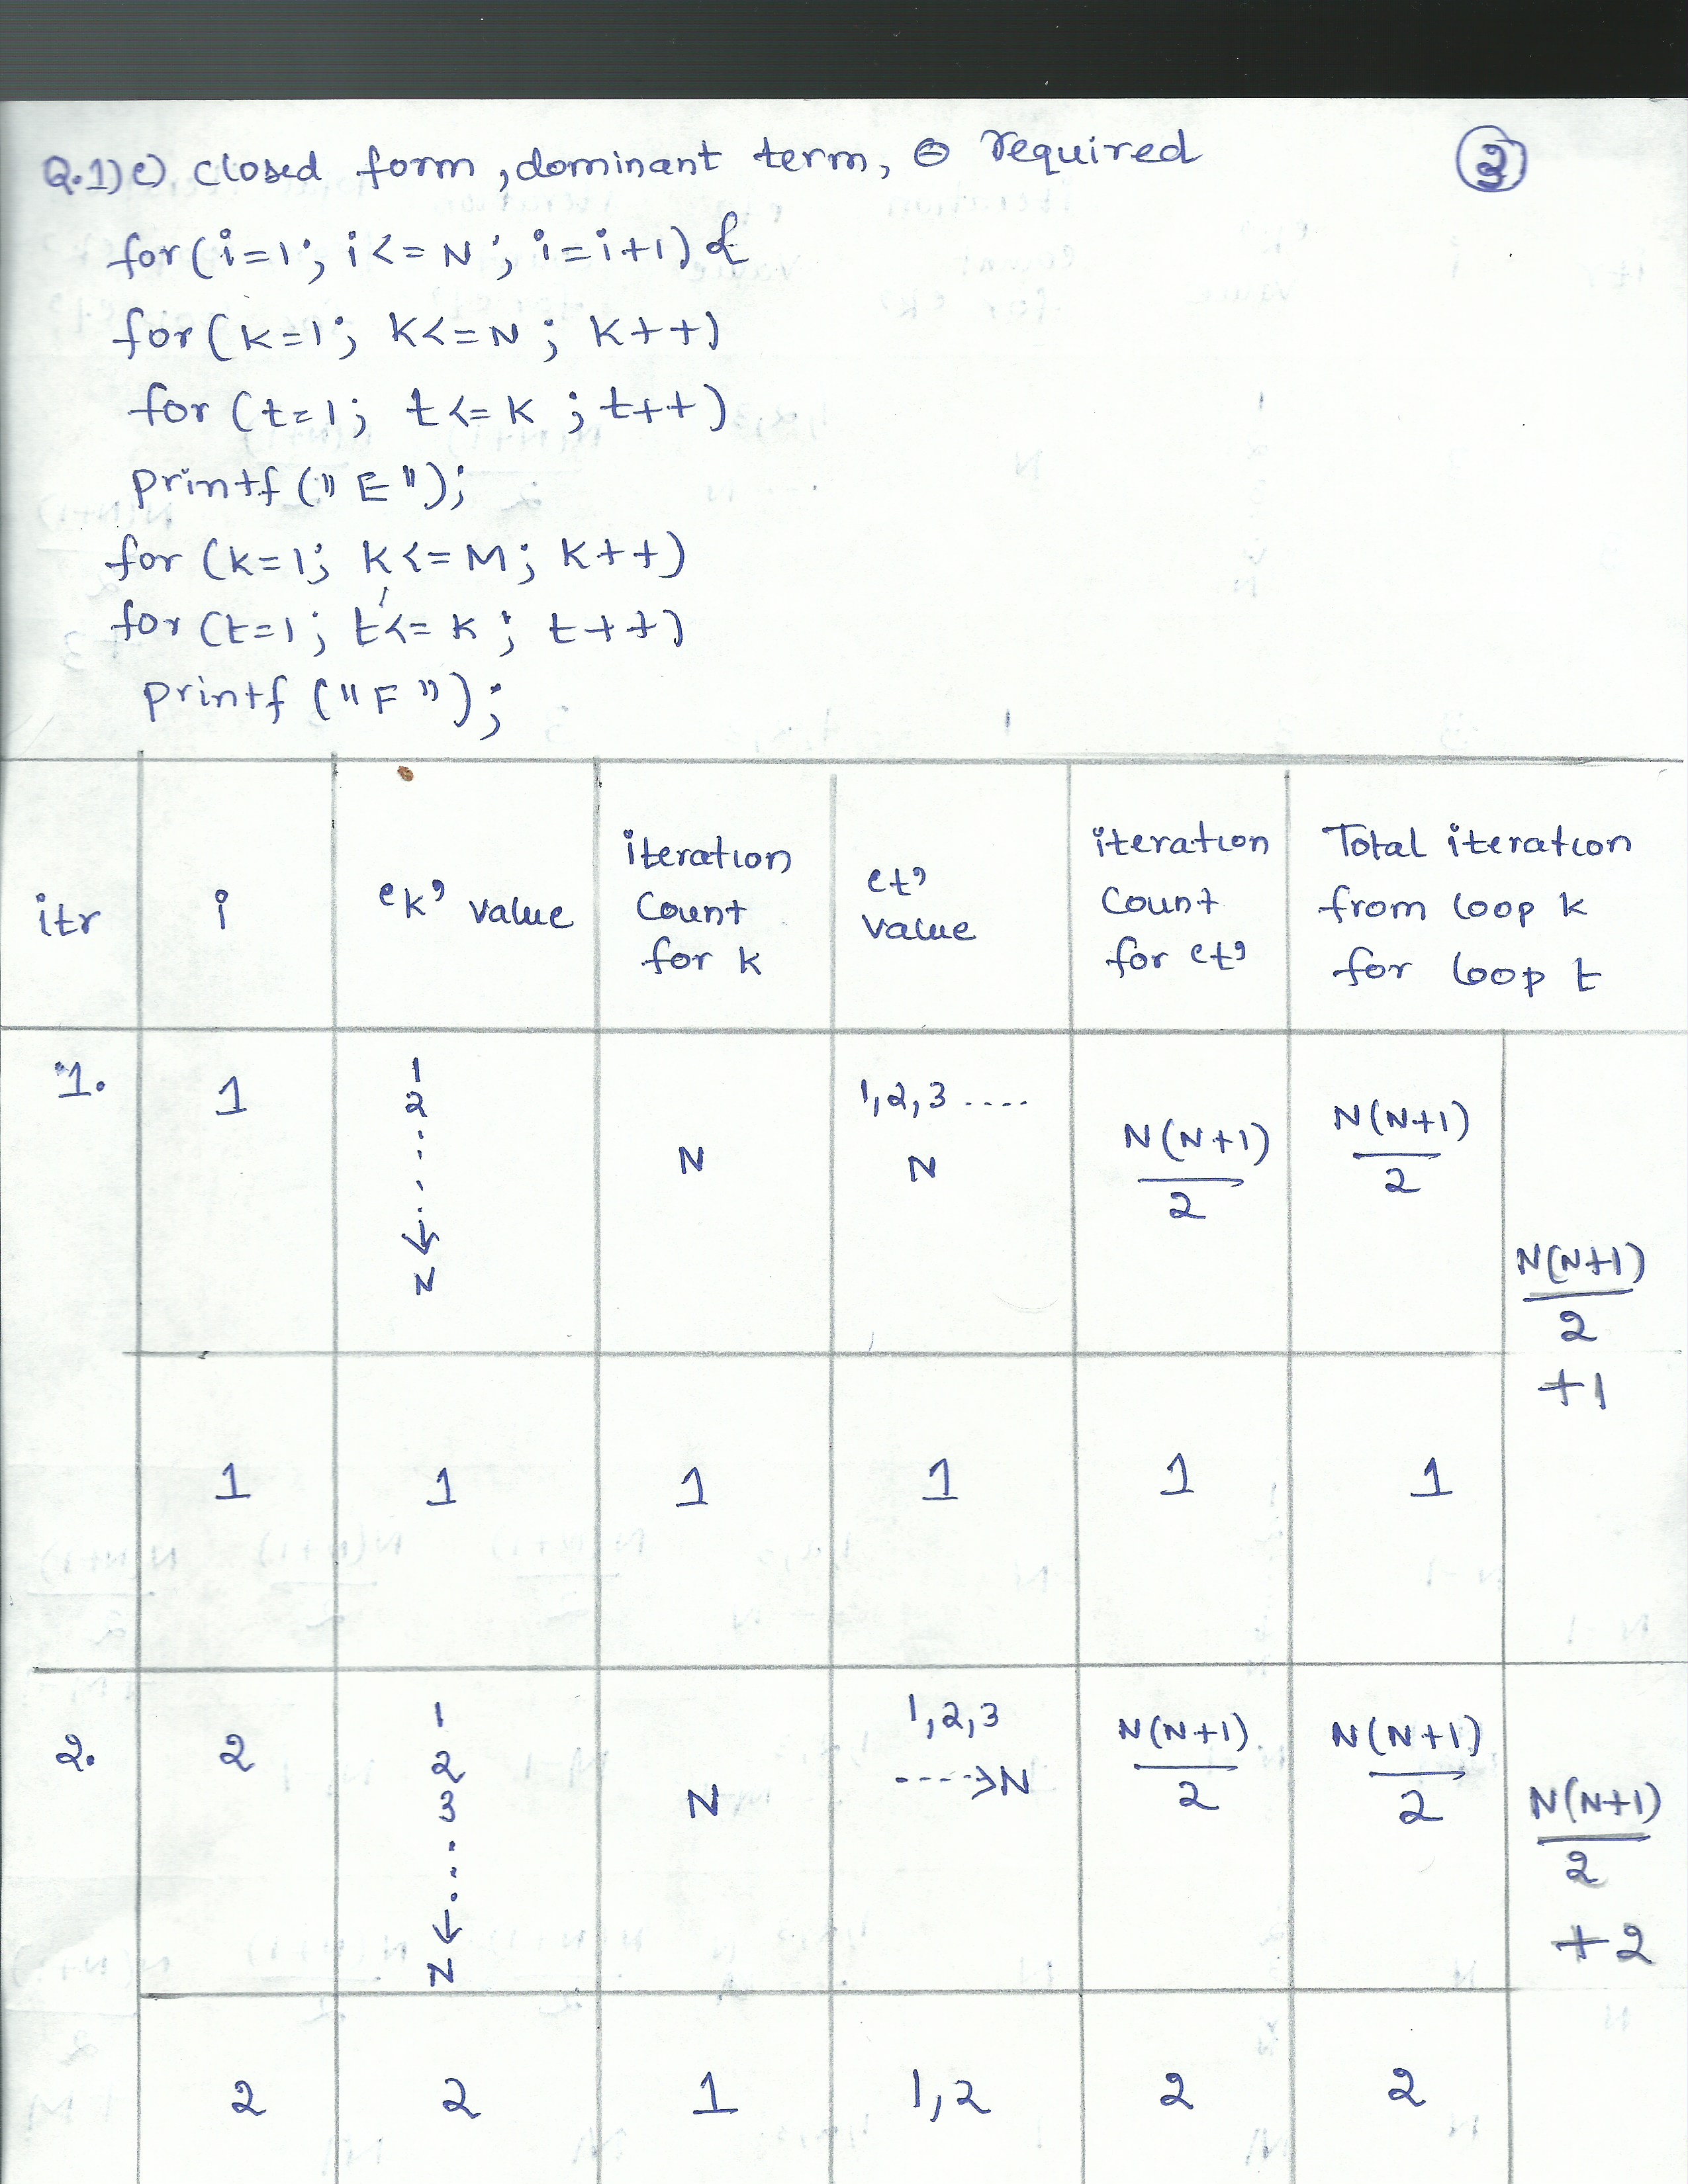 Q.1) e) closed form, dominant term, Θ required
3
for(i=1; i<=N; i=i+1) {
for(k=1; k<=N; k++)
for(t=1; t<=k; t++)
printf("E");
for(k=1; k<=M; k++)
for(t=1; t<=k; t++)
printf("F");
itr i 'k' value iteration count for k 't' value iteration count for 't' Total iteration from loop k for loop t
1. 1 1 2 ..... N N 1,2,3 .... N N(N+1)/2 N(N+1)/2 N(N+1)/2 +1
1 1 1 1 1 1
2. 2 1 2 3 ..... N N 1,2,3 ----> N N(N+1)/2 N(N+1)/2 N(N+1)/2 +2
2 2 1 1,2 2 2